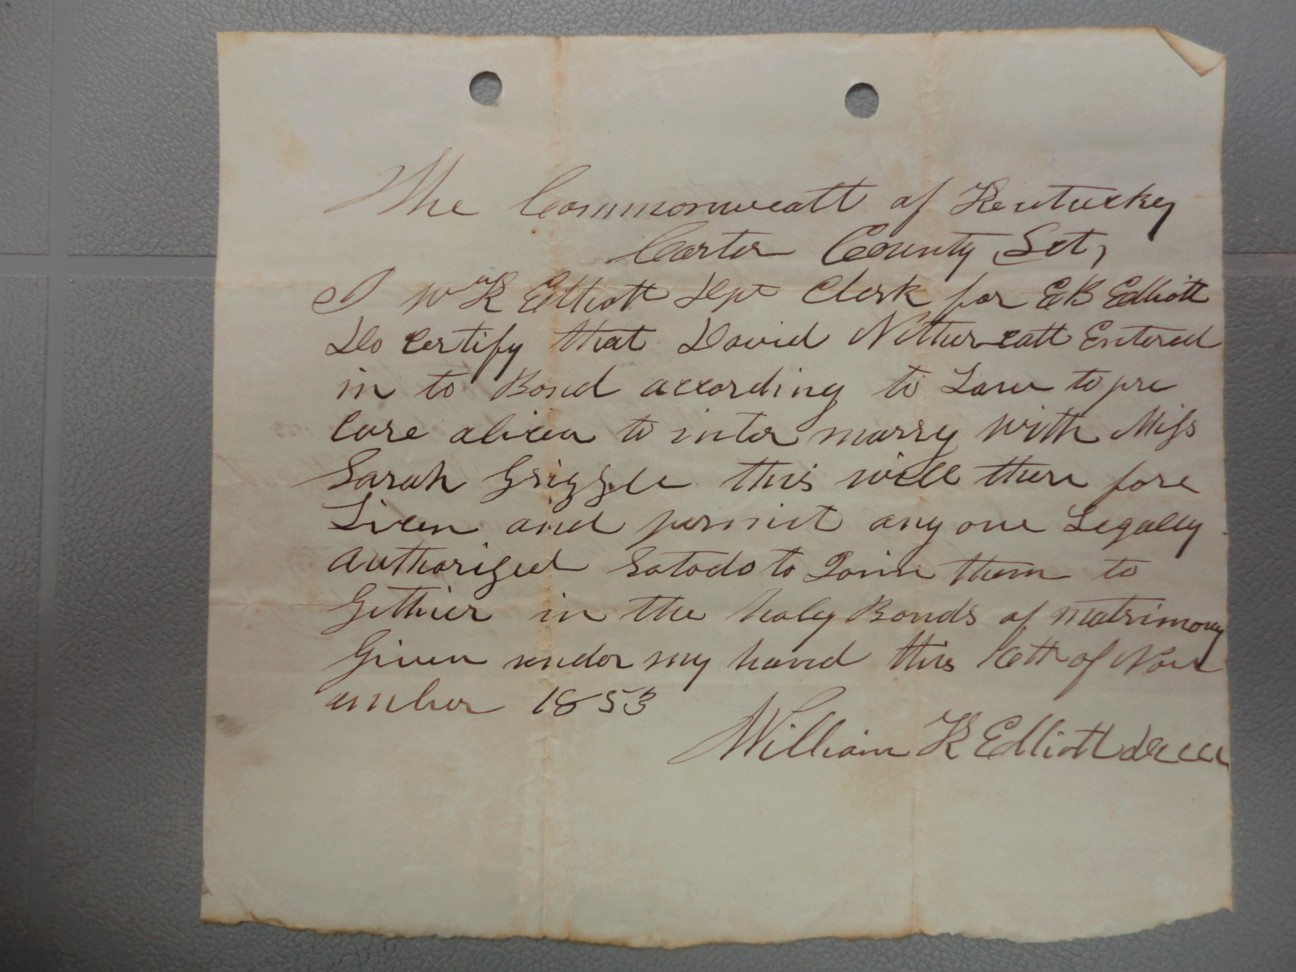 The Commonwealt of Kentucky
Carter County Sct,
I Wm K Elliott Dpt Clerk for E B Elliott
Do certify that David Nethercutt Entered
in to Bond according to Law to pro
Cure a licen to inter marry with Miss
Sarah Grizzle this will there fore
Licen and permit any one Legally
authorized So to do to Join them to
Gethier in the holy Bonds of matrimony
Given under my hand this 16th of Nov
ember 1853
William K Elliott